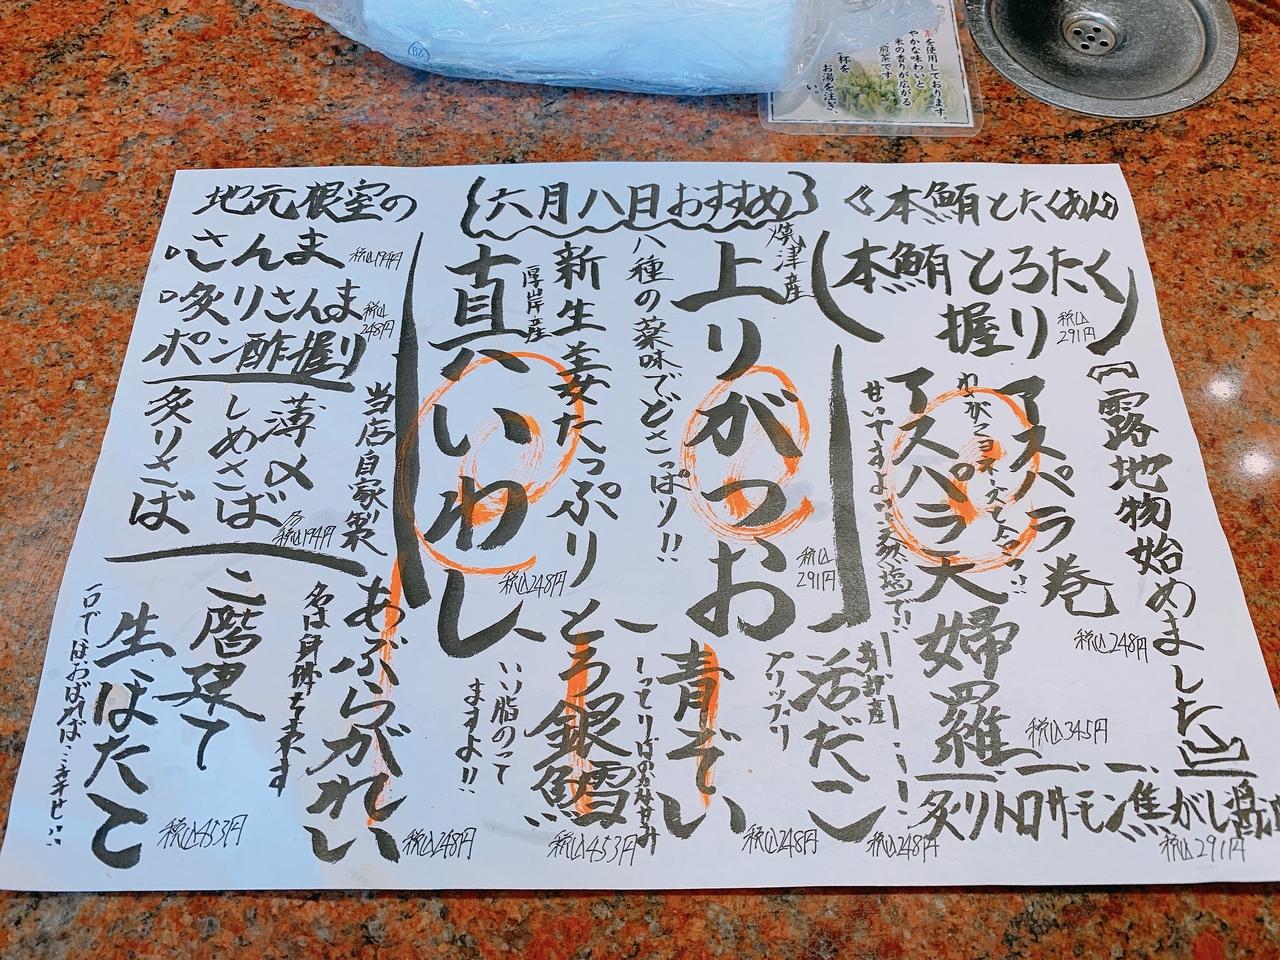 を使用しております。
やかな味わいと
米の香りが広がる
煎茶です
お湯を注ぎ、
六月八日おすすめ
《本鮪とたくあん》
本鮪とろたく
握り
税込291円
露地物始めました
アスパラ巻
税込248円
わがマヨネーズでしょう!!
アスパラ天婦羅
税込345円
せいてますよ!!天然塩で!!
炙りトロサーモン焦がし醤油
税込291円
焼津産
上りがつお
税込291円
八種の薬味でどさっぱり!!
活だこ
プリップリ
税込248円
青ぞい
税込248円
新生姜たっぷり
厚岸産
真いわし
税込248円
とろ銀鱈
税込453円
いい脂のって
ますよ!!
地元根室の
さんま
税込194円
炙りさんま
ポン酢握り
税込248円
当店自家製
薄〆
しめさば
炙りさば
各税込194円
あぶらがれい
名は身体を表す
税込248円
二階建て
生ほたて
税込453円
一口でほおばれば幸せ!!